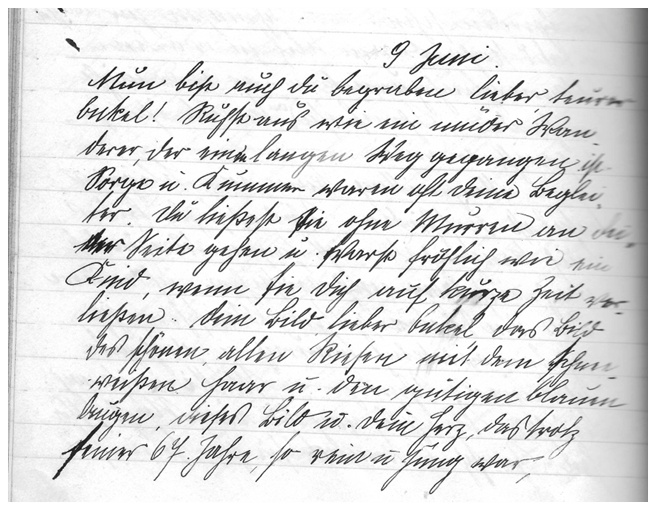 9 Juni.
Nun bist auch du begraben lieber, teurer
Onkel! Ruhst aus wie ein müder Wan-
derer, der einen langen Weg gegangen ist.
Sorge u. Kummer waren oft deine Beglei-
ter. Du ließest sie ohne Murren an dei-
ner Seite gehen u. warst fröhlich wie ein
Kind, wenn sie dich auf kurze Zeit ver-
ließen. Dein Bild, lieber Onkel, das Bild
des schönen, alten Riesen mit dem schnee-
weißen Haar u. den gütigen blauen
Augen, dieses Bild u. dein Herz, das trotz
seiner 67 Jahre, so rein u jung war,